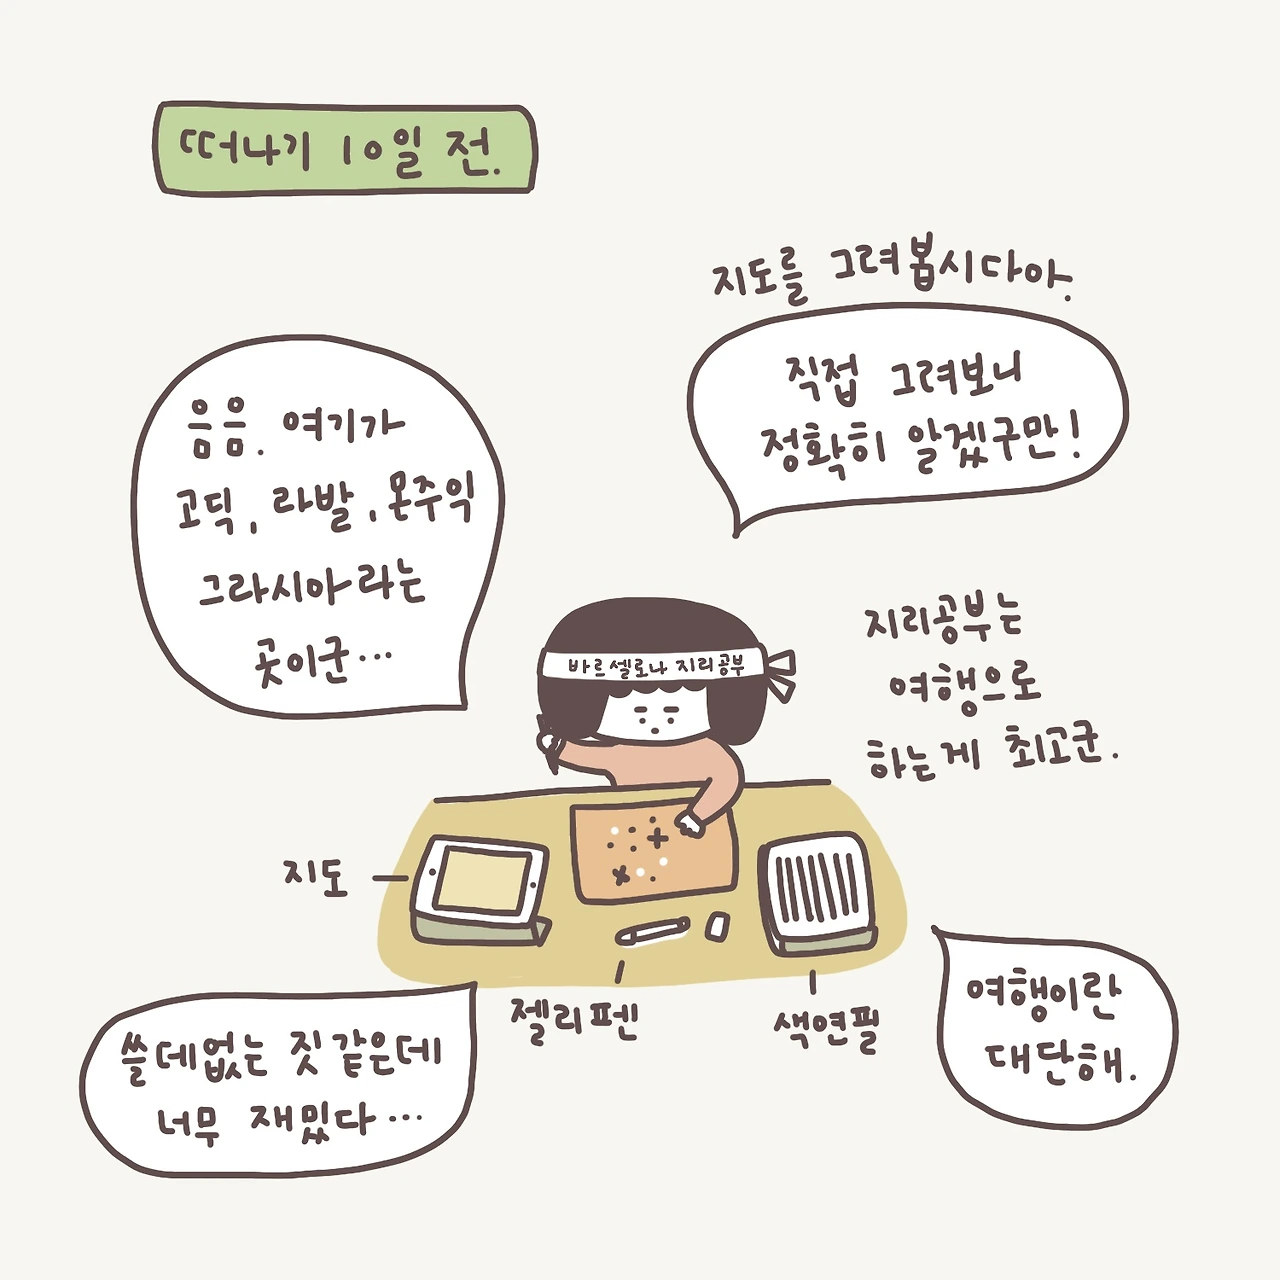 떠나기 10일 전.
지도를 그려봅시다아.
직접 그려보니
정확히 알겠구만!
음음. 여기가
고딕, 라발, 몬주익
그라시아라는
곳이군...
바르셀로나 지리공부
지리공부는
여행으로
하는게 최고군.
지도
젤리펜
색연필
쓸데없는 짓 같은데
너무 재밌다...
여행이란
대단해.